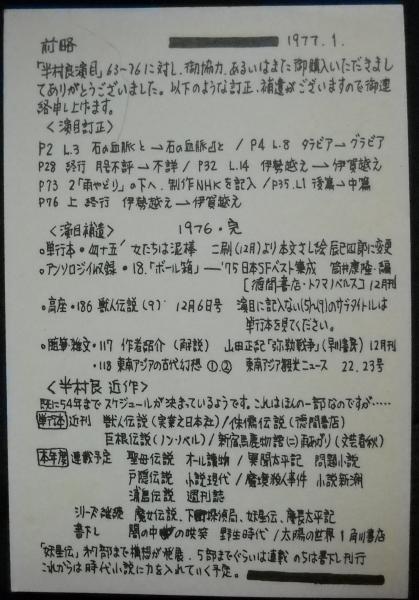 前略 1977.1.
「半村良演目」63~76に対し、御協力、あるいはまた御購入いただきまし
てありがとうございました。以下のような訂正、補遺がございますので御連
絡申し上げます。
<演目訂正>
P2 L.3 石の血脈と→石の血脈』と / P4 L.8 タラビア→グラビア
P28 終行 月号不評→不詳 / P32 L.14 伊勢越え→伊賀越え
P73 2「雨やどり」の下へ、制作NHKを記入 / P35.L1 後篇→中篇
P76 上 終行 伊勢越え→伊賀越え
<演目補遺> 1976・完
○単行本・四十五' 女たちは泥棒 二刷(12月)より本文さし絵 辰巳四郎に変更
○アンソロジイ収録・18.「ボール箱」―'75日本SFベスト集成 筒井康隆・編
[徳間書店・トクマノベルス] 12月刊
○高座・186 獣人伝説(9) 12月6日号 演目に記入ない(5)~(9)のサブタイトルは
単行本を見てください。
○随筆・雑文・117 作者紹介(解説) 山田正紀「弥勒戦争」(早川書房) 12月刊
・118 東南アジアの古代幻想 ①.② 東南アジア観光ニュース 22.23号
<半村良 近作>
既に54年までスケジュールが決まっているようです。これはほんの一部なのですが……
単行本 近刊 獣人伝説(実業之日本社)/侏儒伝説(徳間書店)
巨根伝説(ノン・ノベル)/新宿馬鹿物語(二)雨やどり(文芸春秋)
本年度 連載予定 聖母伝説 オール讀物/異聞太平記 問題小説
戸隠伝説 小説現代/魔境殺人事件 小説新潮
浦島伝説 週刊誌
シリーズ継続 魔女伝説、下町探偵局、妖星伝、慶長太平記
書下し 闇の中の哄笑 野生時代/太陽の世界 1 角川書店
「妖星伝」オワ部まで構想が発展、5部までぐらいは連載 のちは書下し刊行
これからは時代小説に力を入れていく予定。